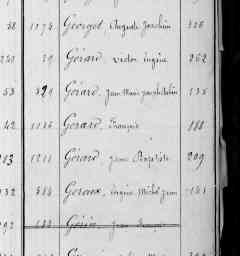 58 1174 Georget Auguste Joachim
240 59 Gérard, Victor Eugène 262
53 Gérard, Jean Marie 135
42 Gérard, François 188
213 1211 Gérard Jean Baptiste 209
132 Geroux, Eugène Michel Jean
292 Jean François